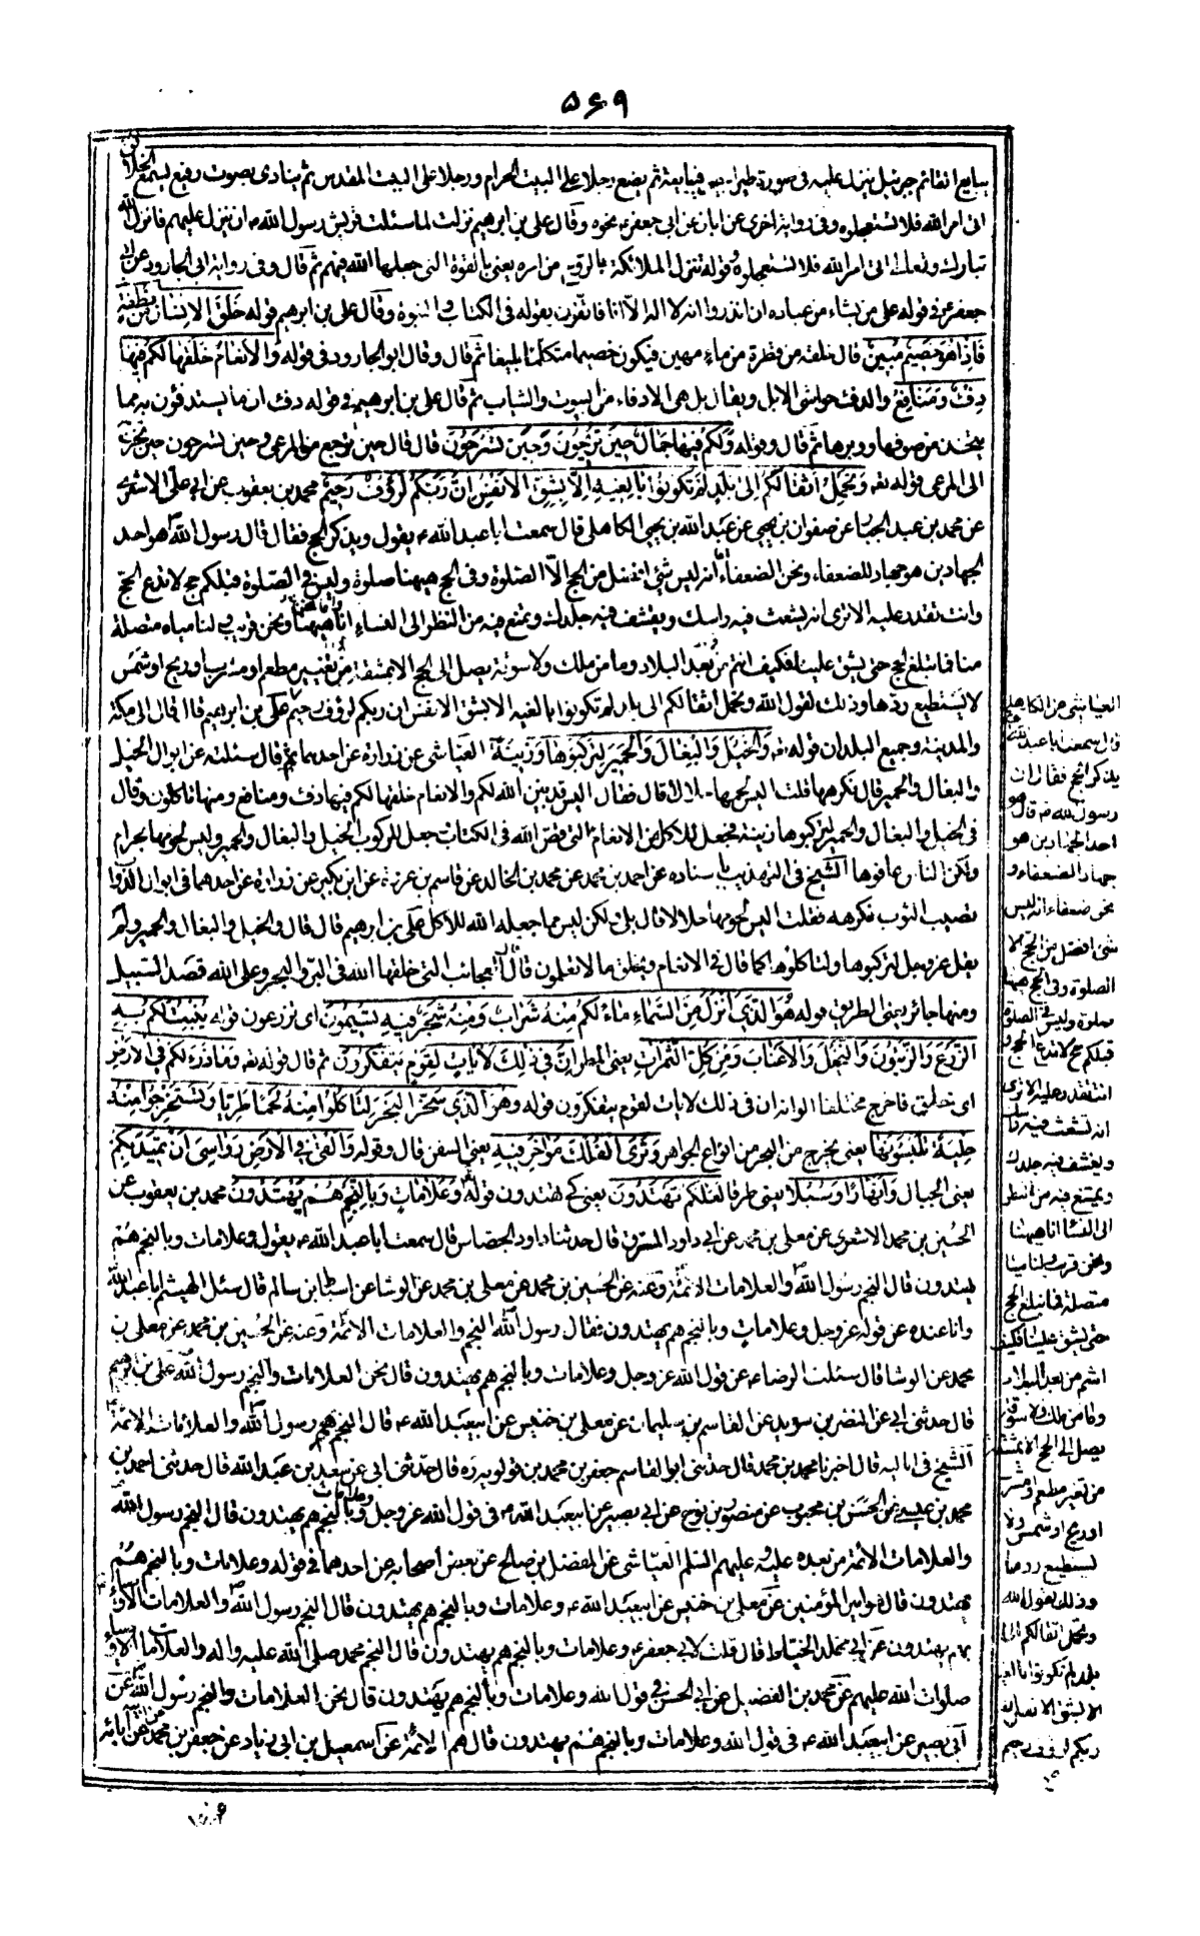 ۵۶۹
يبايع القائم جبرئيل ينزل عليه فى صورة طير ابيض فيبايعه ثم يضع رجلا على البيت الحرام ورجلا على البيت المقدس ثم ينادى بصوت رفيع يسمع الخلائق
اتى امر الله فلا تستعجلوه وفى رواية اخرى عن ابان عن ابى جعفر ع نحوه وقال على بن ابرهيم نزلت لما سئلت قريش رسول الله ص ان ينزل عليهم فانزل الله
تبارك وتعالى اتى امر الله فلا تستعجلوه وقوله تنزل الملائكة بالروح من امره يعنى بالقوة التى جعلها الله فيهم ثم قال وفى رواية ابى الجارود عن ابى
جعفر ع فى قوله على من يشاء من عباده ان انذروا انه لا اله الا انا فاتقون يقوله فى الكتاب والنبوة وقال على بن ابرهيم قوله خَلَقَ الاِنْسانَ مِنْ نُطْفَةٍ
فَاِذا هُوَ خَصيمٌ مُبينٌ قال خلقه من قطرة من ماء مهين فيكون خصيما متكلما بليغا ثم قال وقال ابو الجارود فى قوله وَالْاَنْعامَ خَلَقَها لَكُمْ فيها
دِفْءٌ وَمَنافِعُ والدفء حواشى الابل ويقال بل هى الادفاء من البيوت والثياب ثم قال على بن ابرهيم فى قوله دفء اى ما يستدفؤن به مما
يتخذ من صوفها ووبرها ثم قال وقوله وَلَكُمْ فيها جَمالٌ حينَ تُريحُونَ وَحينَ تَسْرَحُونَ قال قال حين ترجع من المرعى وحين تسرحون حين تخرج
الى المرعى قوله تع وَتَحْمِلُ اَثْقالَكُمْ اِلى بَلَدٍ لَمْ تَكُونُوا بالِغيهِ اِلّا بِشِقِّ الْاَنْفُسِ اِنَّ رَبَّكُمْ لَرَؤُفٌ رَحيمٌ محمد بن يعقوب عن ابى على الاشعرى
عن محمد بن عبد الجبار عن صفوان بن يحيى عن عبد الله بن يحيى الكاهلى قال سمعت ابا عبد الله ع يقول ويذكر الحج فقال قال رسول الله ص هو احد
الجهادين هو جهاد للضعفاء ونحن الضعفاء اما انه ليس شئ افضل من الحج الا الصلوة وفى الحج هيهنا صلوة وليس فى الصلوة قبلكم حج لا تدع الحج
وانت تقدر عليه الا ترى انه يشعث فيه راسك ويقشف فيه جلدك وتمنع فيه من النظر الى النساء وانا هيهنا ونحن قريب ولنا مياه متصلة
منا فما نبلغ الحج حتى يشق علينا فكيف انتم من بُعد البلاد وما من ملك ولا سوقة يصل الى الحج الا بمشقة من تغيير مطعم او مشرب او ريح او شمس
لا يستطيع ردها وذلك لقول الله وتحمل اثقالكم الى بلد لم تكونوا بالغيه الا بشق الانفس ان ربكم لرؤف رحيم على بن ابرهيم قال قال الى مكة
والمدينة وجميع البلدان قوله تع وَالْخَيْلَ وَالْبِغالَ وَالْحَميرَ لِتَرْكَبُوها وَزينَةً العياشى عن زرارة عن احدهما ع قال سئلته عن ابوال الخيل
والبغال والحمير قال نكرهها قلت اليس لحمها حلالا قال فقال اليس قد بين الله لكم والانعام خلقها لكم فيها دفء ومنافع ومنها تاكلون وقال
فى الخيل والبغال والحمير لتركبوها وزينة فجعل للاكل من الانعام التى قص الله فى الكتاب جعل للركوب الخيل والبغال والحمير وليس لحومها بحرام
ولكن الناس عافوها الشيخ فى التهذيب باسناده عن احمد بن محمد عن محمد بن الخالد عن قاسم بن عروة عن ابن بكير عن زرارة عن احدهما فى ابوال الدواب
تصيب الثوب فكرهه فقلت اليس لحومها حلالا قال بلى ولكن ليس مما جعله الله للاكل على بن ابرهيم قال قال والخيل والبغال والحمير ولم
يقل عز وجل لتركبوها ولتاكلوها كما قال فى الانعام ويخلق ما لا تعلمون قال العجائب التى خلقها الله فى البر والبحر وعلى الله قصد السبيل
ومنها جائر يعنى الطريق قوله هُوَ الَّذى اَنْزَلَ مِنَ السَّماءِ ماءً لَكُمْ مِنْهُ شَرابٌ وَمِنْهُ شَجَرٌ فيهِ تُسيمُونَ اى تزرعون قوله يُنْبِتُ لَكُمْ بِهِ
الزَّرْعَ وَالزَّيْتُونَ وَالنَّخيلَ وَالْاَعْنابَ وَمِنْ كُلِّ الثَّمَراتِ يعنى المطر اِنَّ فى ذلِكَ لَاياتٍ لِقَوْمٍ يَتَفَكَّرُونَ ثم قال قوله تع وما ذرء لكم فى الارض
اى خلق فاخرج مختلفا الوانه ان فى ذلك لايات لقوم يتفكرون قوله وَهُوَ الَّذى سَخَّرَ الْبَحْرَ لِتَاْكُلُوا مِنْهُ لَحْمًا طَرِيًّا وَتَسْتَخْرِجُوا مِنْهُ
حِلْيَةً تَلْبَسُونَها يعنى يخرج من البحر من انواع الجواهر وَتَرَى الْفُلْكَ مَواخِرَ فيهِ يعنى السفن قال وقوله وَاَلْقى فِى الْاَرْضِ رَواسِىَ اَنْ تَميدَ بِكُمْ
يعنى الجبال وَاَنْهارًا وَسُبُلًا يعنى طرقا لَعَلَّكُمْ تَهْتَدُونَ يعنى كى تهتدون قوله وَعَلاماتٍ وَبِالنَّجْمِ هُمْ يَهْتَدُونَ محمد بن يعقوب عن
الحسين بن محمد الاشعرى عن معلى بن محمد عن ابى داود المسترق قال حدثنا داود الجصاص قال سمعت ابا عبد الله ع يقول وعلامات وبالنجم هم
يهتدون قال النجم رسول الله ص والعلامات الائمة وعنه عن الحسين بن محمد عن معلى بن محمد عن الوشا عن اسباط بن سالم قال سئل الهيثم ابا عبد الله
وانا عنده عن قوله عز وجل وعلامات وبالنجم هم يهتدون فقال رسول الله النجم والعلامات الائمة وعنه عن الحسين بن محمد عن معلى بن
محمد عن الوشا قال سئلت الرضا ع عن قول الله عز وجل وعلامات وبالنجم هم يهتدون قال نحن العلامات والنجم رسول الله على بن ابرهيم
قال حدثنى ابى عن النضر بن سويد عن القاسم بن سليمان عن معلى بن خنيس عن ابيعبد الله ع قال النجم هم رسول الله ص والعلامات الائمة
الشيخ فى اماليه قال اخبرنا محمد بن محمد قال حدثنى ابو القاسم جعفر بن محمد بن قولويه ره قال حدثنى ابى عن سعد بن عبد الله قال حدثنى احمد بن
محمد بن عيسى عن الحسن بن محبوب عن منصور بن بزرج عن ابى بصير عن ابيعبد الله ع فى قول الله عز وجل وعلامات وبالنجم هم يهتدون قال النجم رسول الله
والعلامات الائمة من بعده عليه وعليهم السلم العياشى عن المفضل بن صالح عن بعض اصحابه عن احدهما فى قوله وعلامات وبالنجم هم
يهتدون قال هو امير المؤمنين عن معلى بن خنيس عن ابيعبد الله ع وعلامات وبالنجم هم يهتدون قال النجم رسول الله والعلامات الاوصياء
بهم يهتدون عن ابى مخلد الخياط قال قلت لابى جعفر ع وعلامات وبالنجم هم يهتدون قال النجم محمد صلى الله عليه واله والعلامات الاوصياء
صلوات الله عليهم عن محمد بن الفضيل عن ابى الحسن فى قول الله وعلامات وبالنجم هم يهتدون قال نحن العلامات والنجم رسول الله عن
ابى بصير عن ابيعبد الله ع فى قول الله وعلامات وبالنجم هم يهتدون قال هم الائمة عن اسمعيل بن ابى زياد عن جعفر بن محمد عن ابيه عن آبائه
العياشى عن الكاهلى
قال سمعت ابا عبد الله
يذكر الحج فقال ان
رسول الله ص قال هو
احد الجهادين هو
جهاد الضعفاء و
نحن ضعفاء انه ليس
شئ افضل من الحج الا
الصلوة وفى الحج هيهنا
صلوة وليس فى الصلوة
قبلكم حج لا تدع الحج و
انت تقدر عليه الا ترى
انه تشعث فيه راسك
ويقشف فيه جلدك
وتمتنع فيه من النظر
الى النساء انا هيهنا
ونحن قريب ولنا مياه
متصلة فما نبلغ الحج
حتى يشق علينا فكيف
انتم من بعد البلاد
وما من ملك ولا سوقة
يصل الى الحج الا بمشقة
من تغير مطعم او مشرب
او ريح او شمس لا
يستطيع ردها
وذلك لقول الله
وتحمل اثقالكم الى
بلد لم تكونوا بالغيه
الا بشق الانفس ان
ربكم لرؤف رحيم